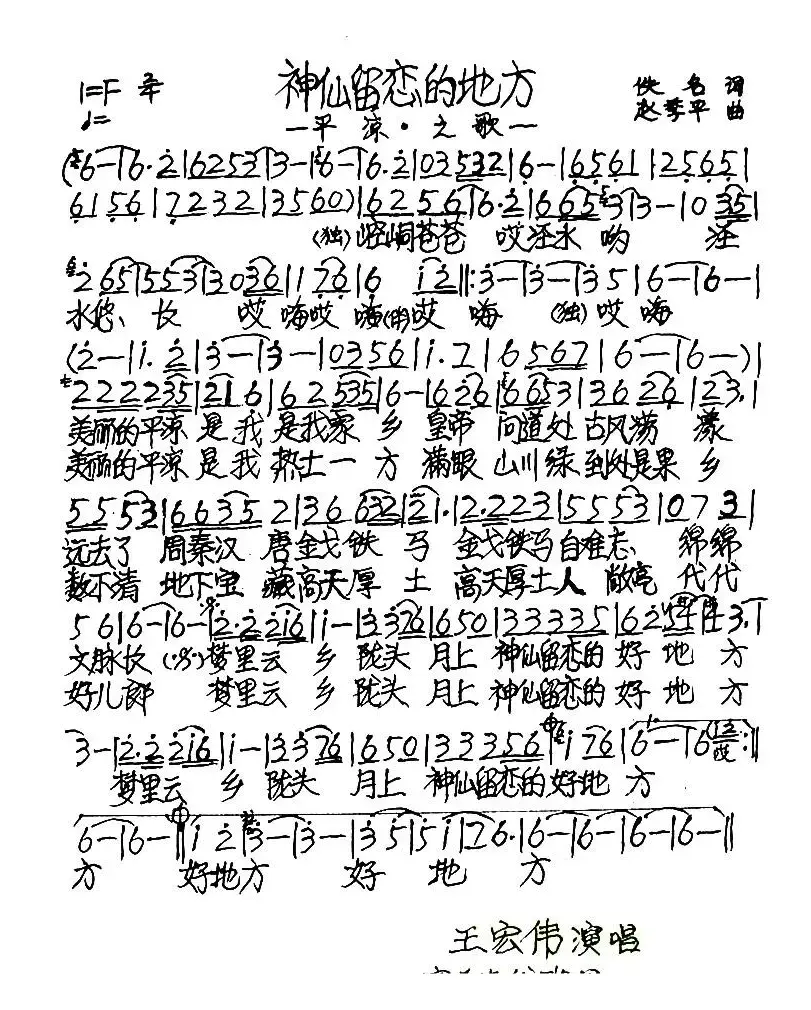 神仙留恋的地方
1=F 2/4
佚名 词
—平凉·之歌—
赵季平 曲
(6—|6·2|6253|3—|6—|6·2|03532|6—|6561|2565|
6156|7232|3560)|6256|6·2|665 3|3—|0 35|
(独)崆峒苍苍 哎泾水 哟 泾
2 65|553|3036|1 76|6 i2‖:3—|3—|3 5|6—|6—|
水悠、长 哎嗨哎 嗨(齐)哎 嗨 (独)哎 嗨
(2—|1.2|3—|3—|0356|i.7|6 567|6—|6—)|
2222235|216|62535|6—|626|6653|3626|23.|
美丽的平凉 是我是我家 乡 皇帝 问道处 古风荡 漾
美丽的平凉 是我 热土一 方 满眼 山川绿 到处是果 乡
5553|6635 2|366 32|2 1.|2.223|5553|073|
远去了 周秦汉 唐金戈铁 马 金戈铁马自难忘、 绵绵
数不清 地下宝 藏高天厚 土 高天厚土人 敞亮 代代
56|6—|6—|2·2 2i6|i—|3376|650|33335|625|3.|
文脉长 梦里云 乡 陇头 月上 神仙留恋的 好 地 方
好儿郎 梦里云 乡 陇头 月上 神仙留恋的 好 地 方
3—|2·2 2i6|i—|3376|650|33356|i76|6—|6 :‖
哎
梦里云 乡 陇头 月上 神仙留恋的好地 方
6—|6—‖i 2|3—|3—|35|5i|76·|6—|6—|6—|6—‖
方 好地方 好 地 方
王宏伟演唱